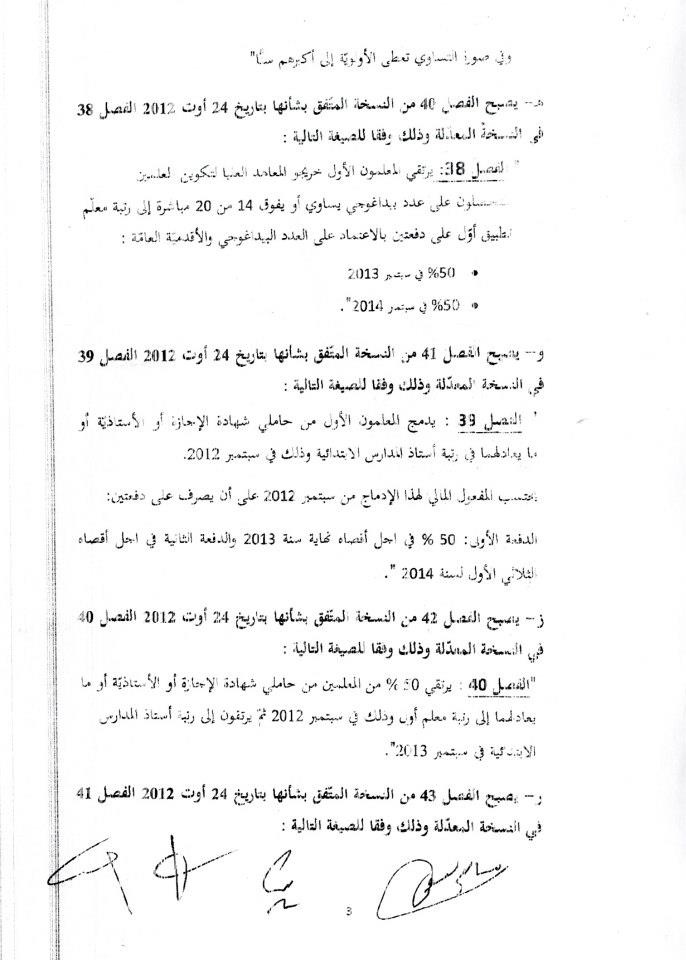 وفي صورة التساوي تعطى الأولويّة إلى أكبرهم سنّا"
هـ- يصبح الفصل 40 من النسخة المتّفق بشأنها بتاريخ 24 أوت 2012 الفصل 38
في النسخة المعدّلة وذلك وفقا للصيغة التالية :
" الفصل 38: يرتقي المعلمون الأول خريجو المعاهد العليا لتكوين لعلمين
على عدد بيداغوجي يساوي أو يفوق 14 من 20 مباشرة إلى رتبة معلّم
تطبيق أوّل على دفعتين بالاعتماد على العدد البيداغوجي والأقدمية العامّة :
• 50% في سبتمبر 2013
• 50% في سبتمبر 2014".
و- يصبح الفصل 41 من النسخة المتّفق بشأنها بتاريخ 24 أوت 2012 الفصل 39
في النسخة المعدّلة وذلك وفقا للصيغة التالية :
' الفصل 39 : يدمج المعلمون الأول من حاملي شهادة الإجازة أو الأستاذيّة أو
ما يعادلهما في رتبة أستاذ المدارس الابتدائية وذلك في سبتمبر 2012.
يحتسب المفعول المالي لهذا الإدماج من سبتمبر 2012 على أن يصرف على دفعتين:
الدفعة الأولى: 50 % في اجل أقصاه نهاية سنة 2013 والدفعة الثانية في اجل أقصاه
الثلاثي الأول لسنة 2014 ".
ز- يصبح الفصل 42 من النسخة المتّفق بشأنها بتاريخ 24 أوت 2012 الفصل 40
في النسخة المعدّلة وذلك وفقا للصيغة التالية :
"الفصل 40 : يرتقي 50 % من المعلمين من حاملي شهادة الإجازة أو الأستاذيّة أو ما
يعادلهما إلى رتبة معلم أول وذلك في سبتمبر 2012 ثمّ يرتقون إلى رتبة أستاذ المدارس
الابتدائية في سبتمبر 2013".
ر- يصبح الفصل 43 من النسخة المتّفق بشأنها بتاريخ 24 أوت 2012 الفصل 41
في النسخة المعدّلة وذلك وفقا للصيغة التالية :
3